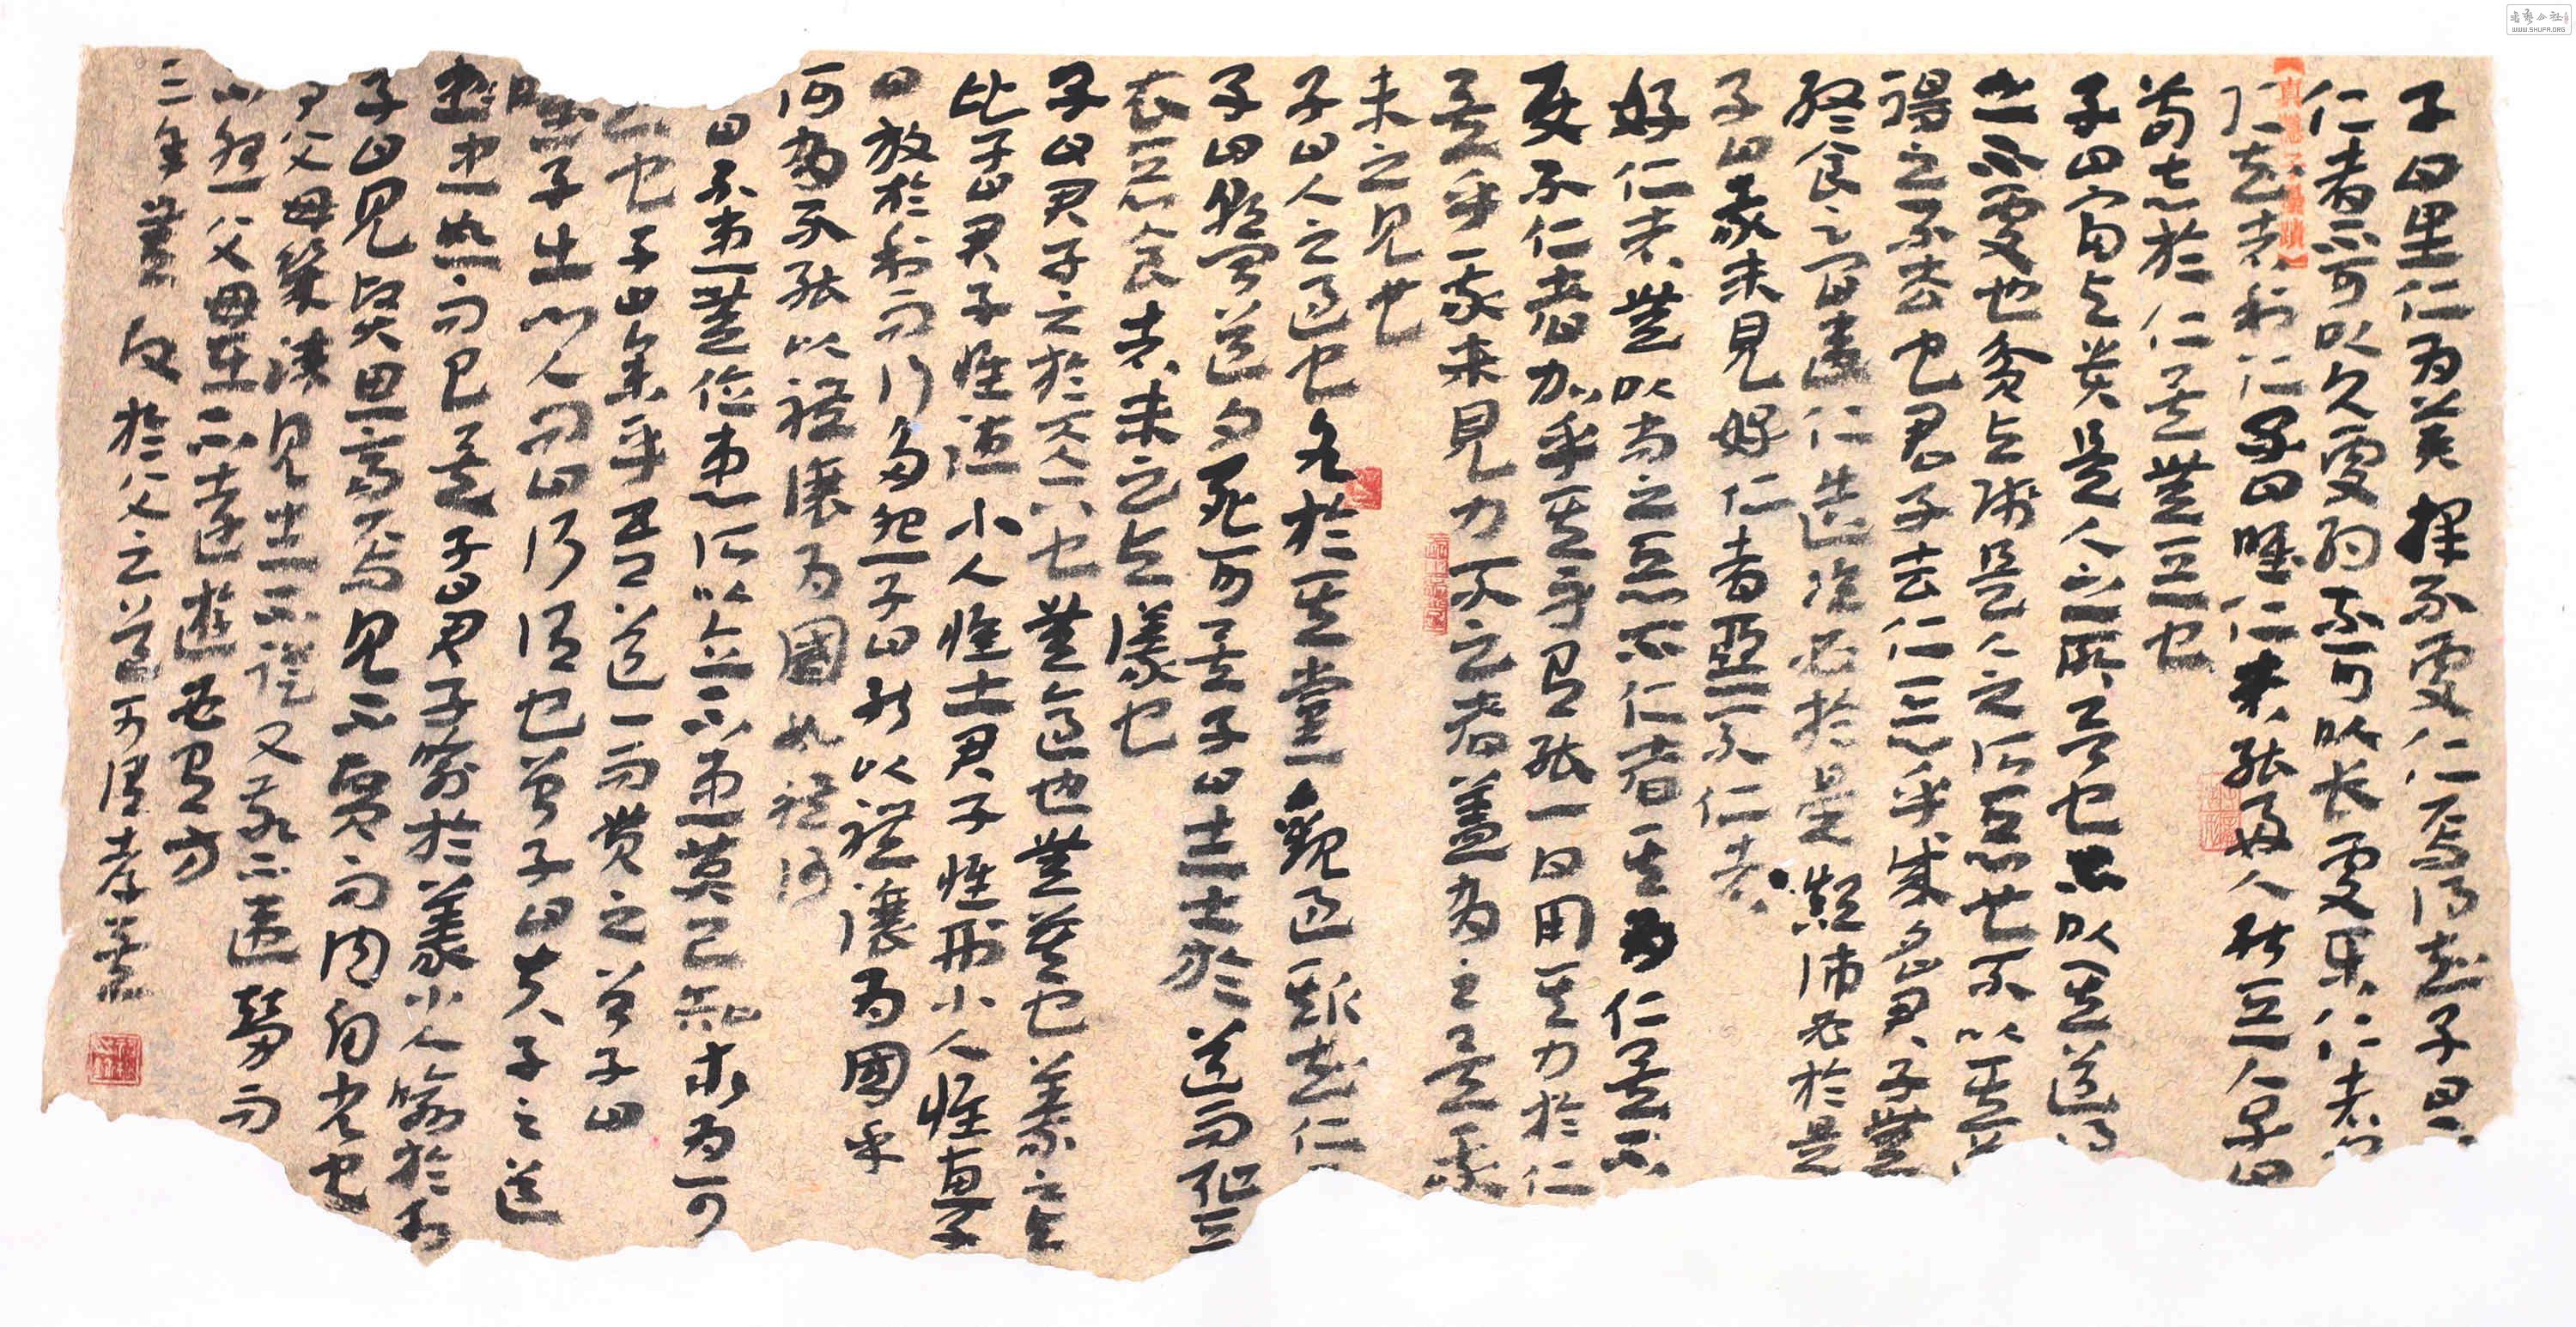 子曰里仁为美择不處仁焉得知子曰不
仁者不可以久處約不可以长處樂仁者安
仁知者利仁子曰唯仁者能好人能惡人子曰
苟志於仁矣無惡也
子曰富与貴是人之所欲也不以其道得
之不處也貧与賤是人之所惡也不以其道
得之不去也君子去仁惡乎成名君子無
終食之間違仁造次必於是顛沛必於是
子曰我未見好仁者惡不仁者
好仁者無以尚之惡不仁者其为仁矣不
使不仁者加乎其身有能一日用其力於仁
矣乎我未見力不之者盖為之矣我
未之見也
子曰人之過也各於其黨觀過斯知仁
子曰朝聞道夕死可矣子曰士士於道而恥
衣惡食者未之与議也
子曰君子之於天下也無適也無莫也義之与
比子曰君子懷德小人懷土君子懷刑小人懷惠子
曰放於利而行多怨子曰能以禮讓为國乎
何為不能以禮讓为國如禮何
曰不患無位患所以立不患莫己知求为可
知也子曰參乎吾道一而貫之曾子曰
唯子出門人問曰何謂也曾子曰夫子之道
忠恕而已矣子曰君子喻於義小人喻於利
子曰見賢思齊焉見不賢而内自省也
子曰父母幾諫見志不從又敬不違勞而
不怨父母在不遠遊必有方
三年無改於父之道可謂孝矣
書藝公社
WWW.SHUFR.ORG